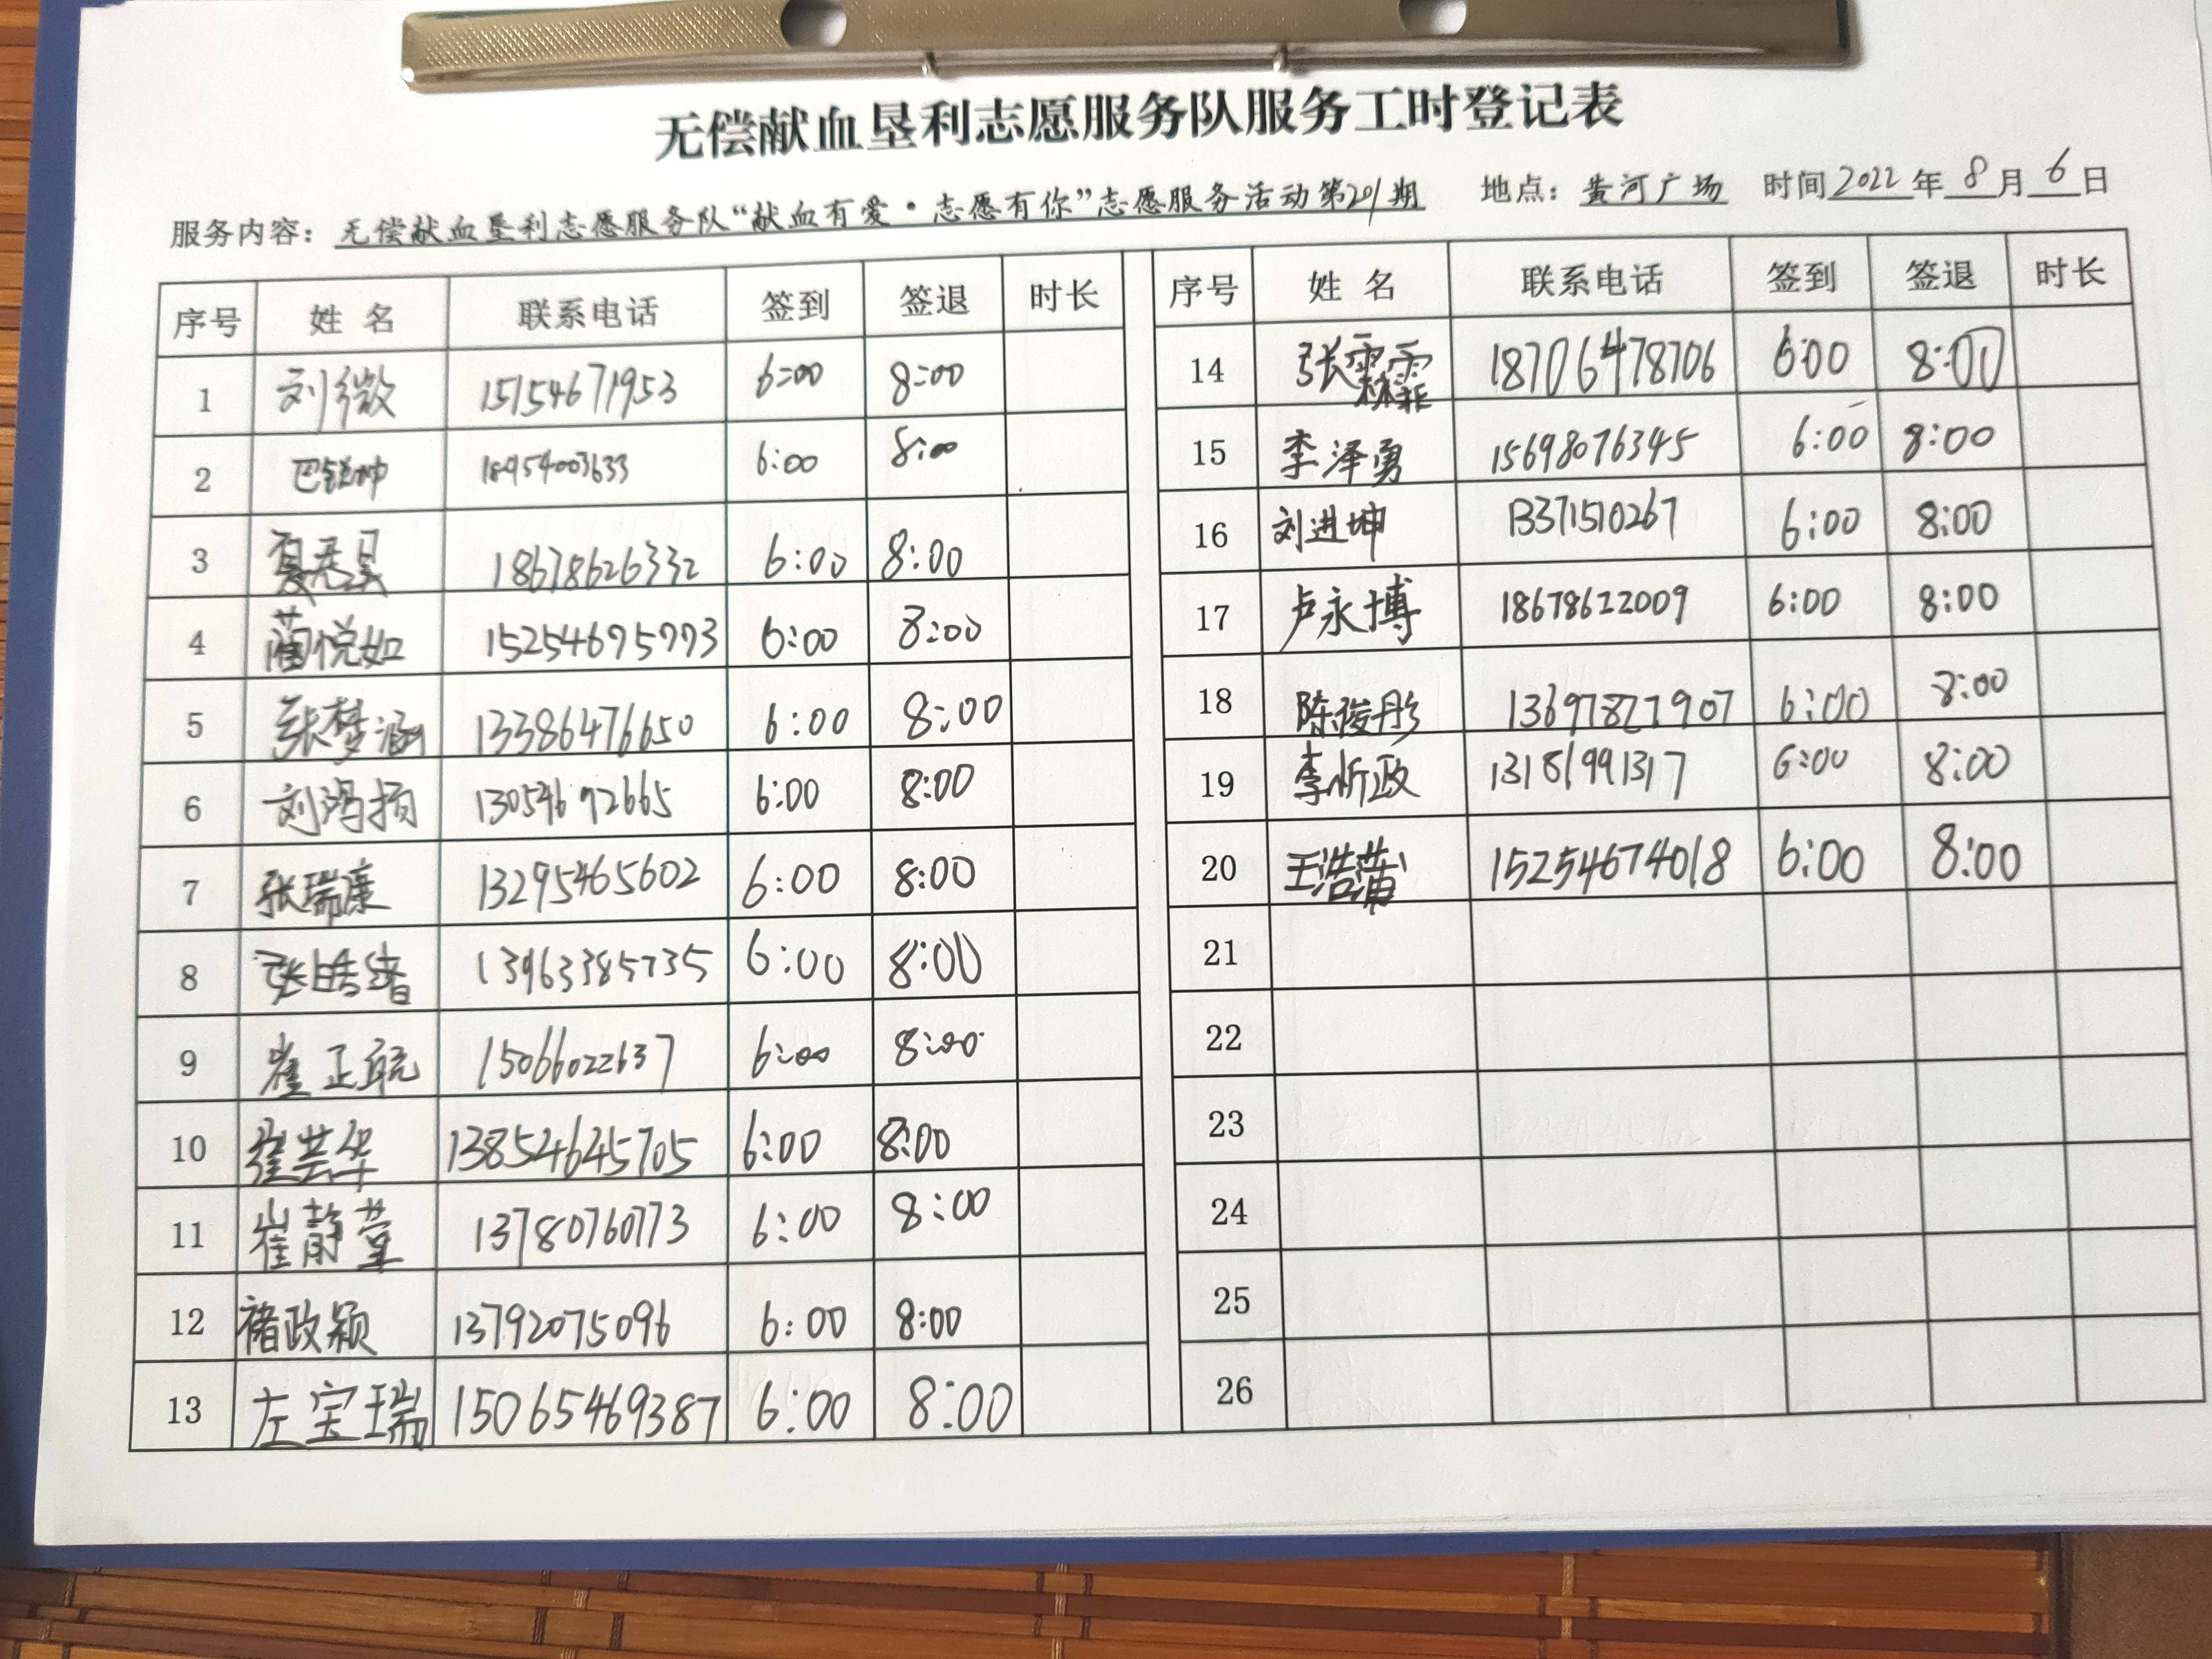 无偿献血垦利志愿服务队服务工时登记表
服务内容：无偿献血垦利志愿服务队“献血有爱·志愿有你”志愿服务活动第201期 地点：黄河广场 时间2022年8月6日
序号 姓名 联系电话 签到 签退 时长 序号 姓名 联系电话 签到 签退 时长
1 刘微 15154671953 6:00 8:00
2 18954003633 6:00 8:00
3 18678626332 6:00 8:00
4 蔺悦如 15254695993 6:00 8:00
5 张梦涵 13386476650 6:00 8:00
6 13054692665 6:00 8:00
7 张瑞康 13295465602 6:00 8:00
8 张皓绪 13963385735 6:00 8:00
9 崔正毓 15066022637 6:00 8:00
10 崔芸华 13854645705 6:00 8:00
11 崔静萱 13780760773 6:00 8:00
12 褚政颖 13792075096 6:00 8:00
13 左宝瑞 15065469387 6:00 8:00
14 张霖霏 18706478706 6:00 8:00
15 李泽勇 15698076345 6:00 8:00
16 刘进坤 13371510267 6:00 8:00
17 卢永博 18678622009 6:00 8:00
18 陈俊彤 13697827907 6:00 8:00
19 李忻政 13181991317 6:00 8:00
20 15254674018 6:00 8:00
21
22
23
24
25
26